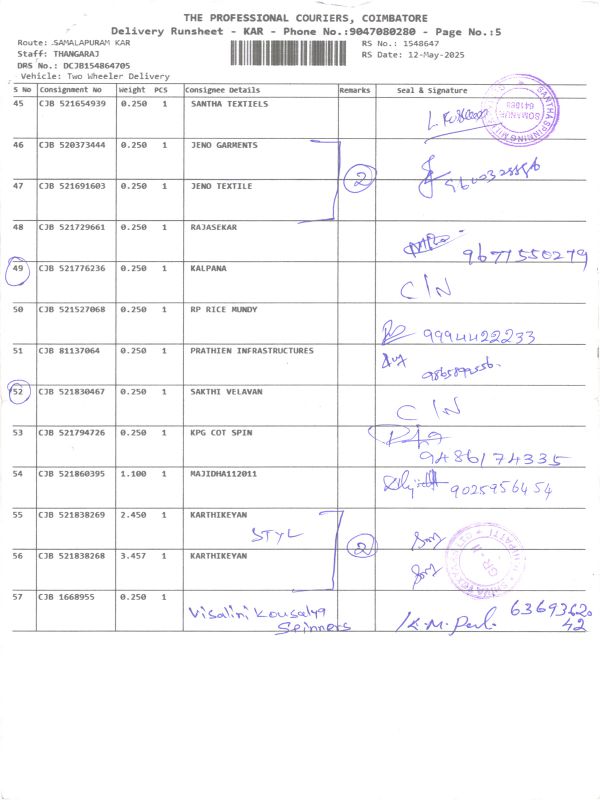 THE PROFESSIONAL COURIERS, COIMBATORE
Delivery Runsheet - KAR - Phone No.:9047080280 - Page No.:5
Route: .SAMALAPURAM KAR
RS No.: 1548647
Staff: THANGARAJ
RS Date: 12-May-2025
DRS No.: DCJB154864705
Vehicle: Two Wheeler Delivery
S No Consignment No Weight PCS Consignee Details Remarks Seal & Signature
45 CJB 521654939 0.250 1 SANTHA TEXTIELS
SANTHA SPINNING MILLS
SOMANUR
641668
46 CJB 520373444 0.250 1 JENO GARMENTS
2
47 CJB 521691603 0.250 1 JENO TEXTILE
48 CJB 521729661 0.250 1 RAJASEKAR
9671550279
49 CJB 521776236 0.250 1 KALPANA
C/N
50 CJB 521527068 0.250 1 RP RICE MUNDY
9994422233
51 CJB 81137064 0.250 1 PRATHIEN INFRASTRUCTURES
52 CJB 521830467 0.250 1 SAKTHI VELAVAN
C/N
53 CJB 521794726 0.250 1 KPG COT SPIN
9486174335
54 CJB 521860395 1.100 1 MAJIDHA112011
9025956454
55 CJB 521838269 2.450 1 KARTHIKEYAN
STYL
2
56 CJB 521838268 3.457 1 KARTHIKEYAN
57 CJB 1668955 0.250 1
Visalini Kousalya
Spinners
K.M.
63693620
42